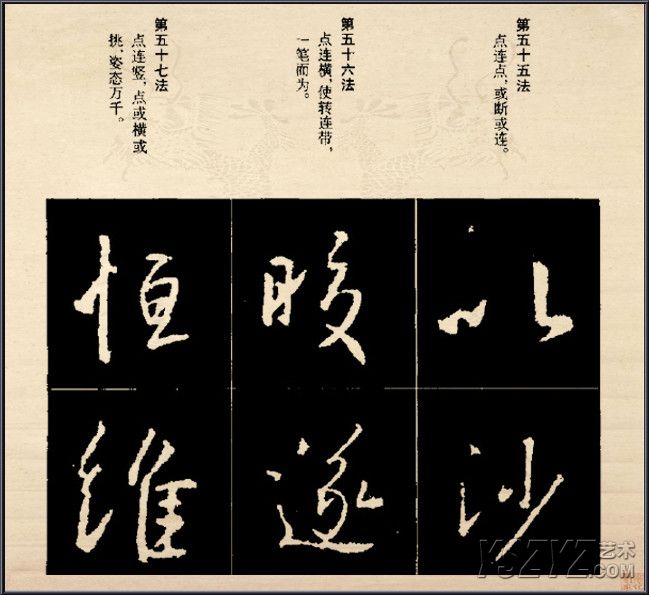 第五十五法
点连点，或断或连。
第五十六法
点连横，使转连带，
一笔而为。
第五十七法
点连竖，点或横或
挑，姿态万千。
以
沙
遂
恒
维
YSZYZ艺术
.com